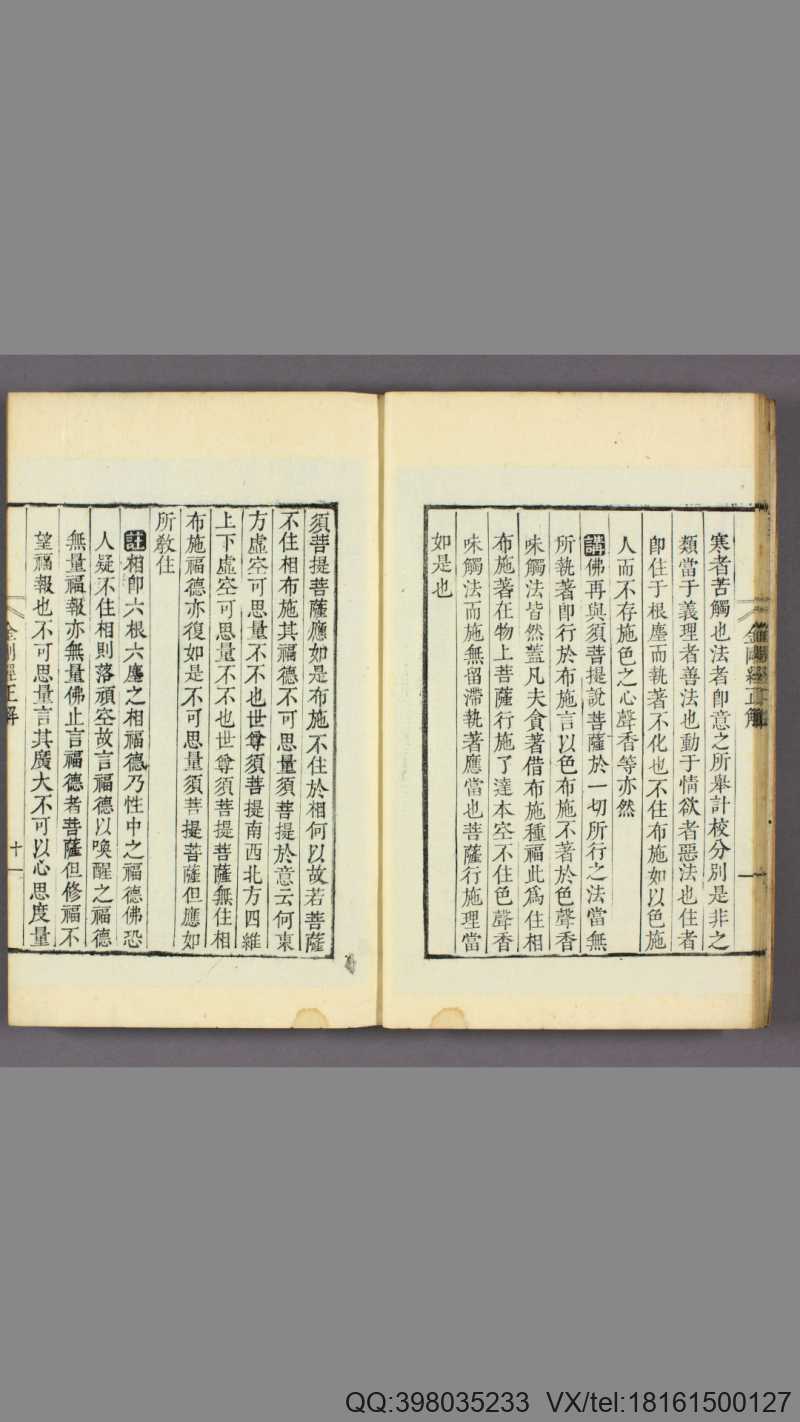 金剛經正解
寒者苦觸也法者卽意之所舉計校分別是非之
類當于義理者善法也動于情欲者惡法也住者
卽住于根塵而執著不化也不住布施如以色施
人而不存施色之心聲香等亦然
講佛再與須菩提說菩薩於一切所行之法當無
所執著卽行於布施言以色布施不著於色聲香
味觸法皆然蓋凡夫貪著借布施種福此爲住相
布施著在物上菩薩行施了達本空不住色聲香
味觸法而施無留滯執著應當也菩薩行施理當
如是也
須菩提菩薩應如是布施不住於相何以故若菩薩
不住相布施其福德不可思量須菩提於意云何東
方虛空可思量不不也世尊須菩提南西北方四維
上下虛空可思量不不也世尊須菩提菩薩無住相
布施福德亦復如是不可思量須菩提菩薩但應如
所教住
註相卽六根六塵之相福德乃性中之福德佛恐
人疑不住相則落頑空故言福德以喚醒之福德
無量福報亦無量佛止言福德者菩薩但修福不
望福報也不可思量言其廣大不可以心思度量
金剛經正解
十一
QQ:398035233 VX/tel:18161500127